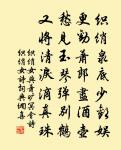 织绡泉底少欢娱
更劝萧郎尽酒壶
愁见玉琴弹别鹤
又将清泪滴真珠
织绡女与青旷冥会诗
织绡女诗词典佩喜